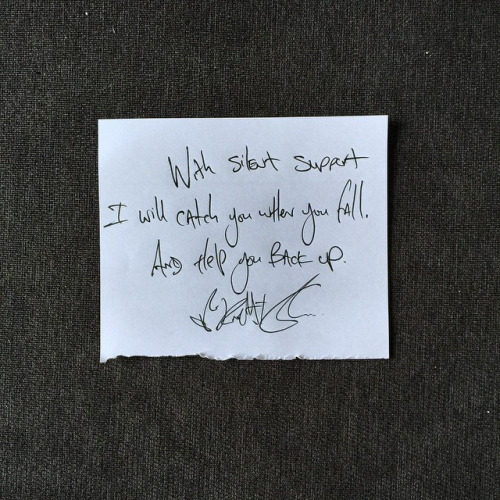 With silent support
I will catch you when you fall.
And Help you Back up.